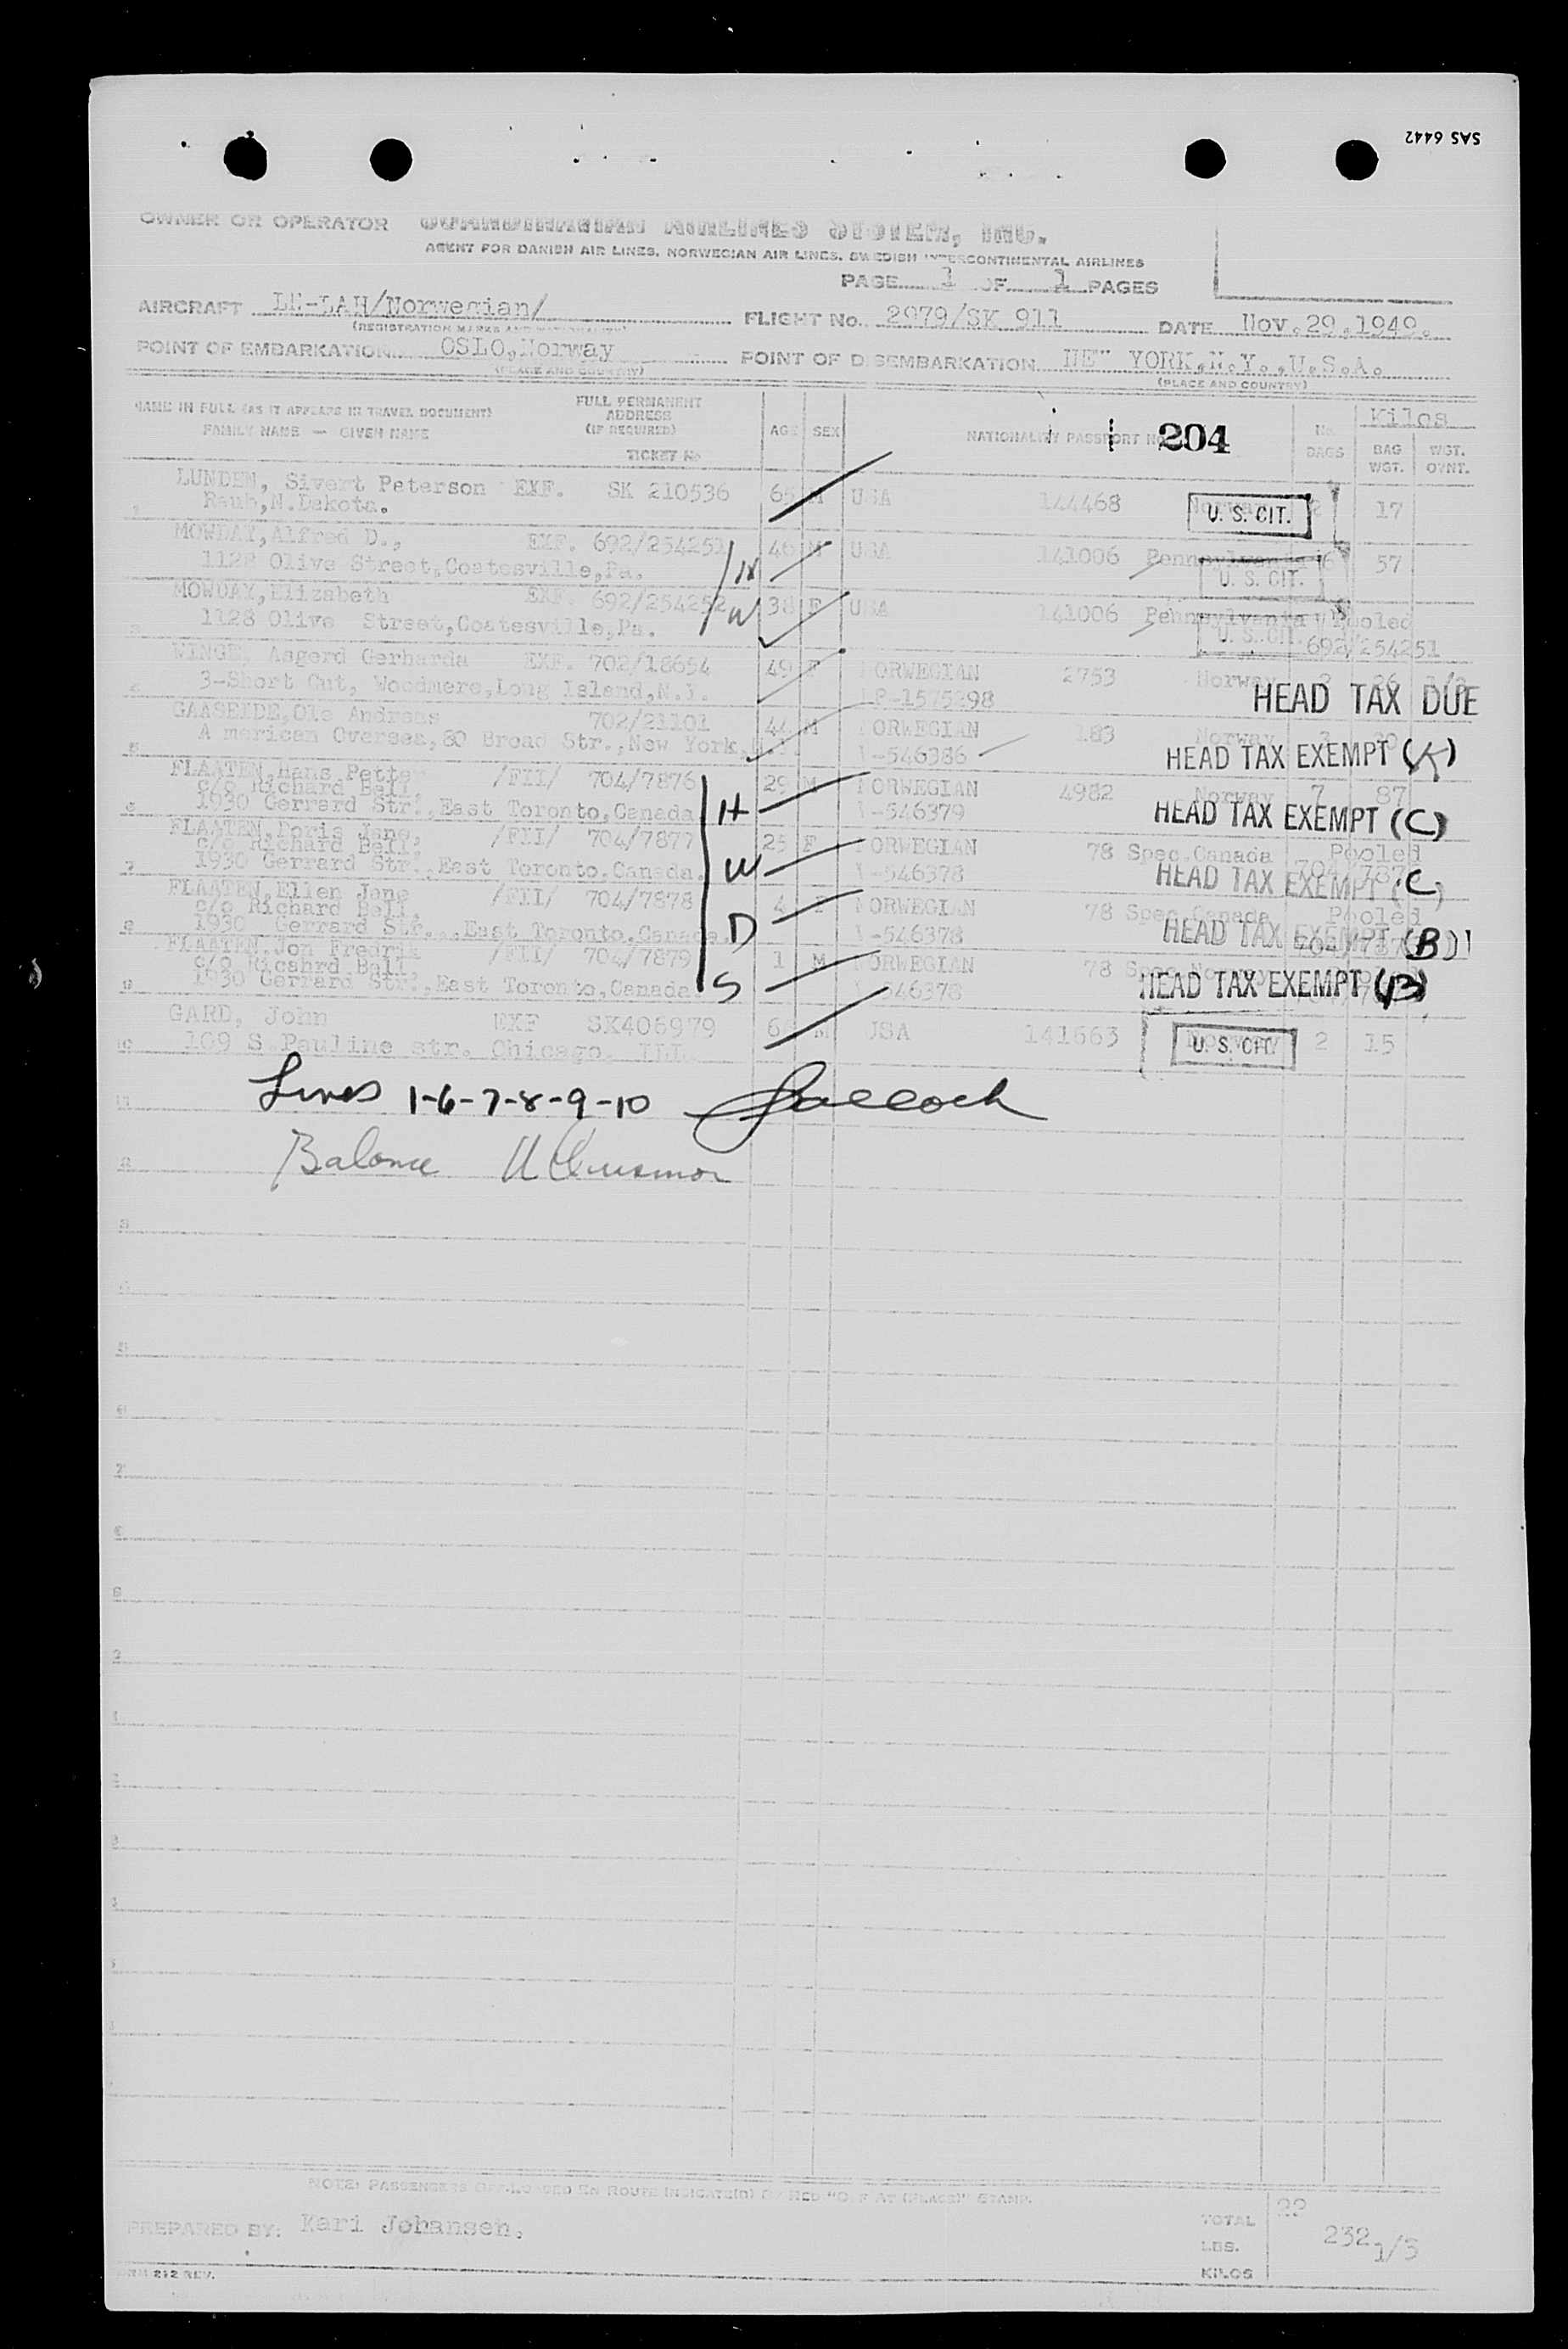 SAS 6442
OWNER OR OPERATOR SCANDINAVIAN AIRLINES SYSTEM, INC.
AGENT FOR DANISH AIR LINES, NORWEGIAN AIR LINES, SWEDISH INTERCONTINENTAL AIRLINES
PAGE 1 OF 1 PAGES
AIRCRAFT LN-LAH/Norwegian/ FLIGHT No. 2979/SK 911 DATE Nov.29,1949.
(REGISTRATION MARKS AND NATIONALITY)
POINT OF EMBARKATION OSLO,Norway POINT OF DISEMBARKATION NEW YORK,N.Y.,U.S.A.
(PLACE AND COUNTRY) (PLACE AND COUNTRY)
NAME IN FULL (AS IT APPEARS IN TRAVEL DOCUMENT) FULL PERMANENT ADDRESS (IF REQUIRED) Kilos
FAMILY NAME — GIVEN NAME TICKET No AGE SEX NATIONALITY PASSPORT No 204 No. BAGS BAG WGT. WGT. OVNT.
LUNDEN, Sivert Peterson EXF. SK 210536 65 M USA 144468 Norway 2 17
1 Raub,N.Dakota. U. S. CIT.
MOWDAY,Alfred D., EXF. 692/254251 46 M USA 141006 Pennsylvania 6 57
1128 Olive Street,Coatesville,Pa. H U. S. CIT.
MOWDAY,Elizabeth EXF. 692/254252 38 F USA 141006 Pennsylvania Pooled
3 1128 Olive Street,Coatesville,Pa. W U. S. CIT. 692/254251
WINGE, Asgerd Gerharda EXF. 702/18654 49 F NORWEGIAN 2753 Norway
4 3-Short Cut, Woodmere,Long Island,N.Y. HEAD TAX DUE
GAASEIDE,Ole Andreas 702/21101 44 M NORWEGIAN 183 Norway 3
5 A merican Overses,80 Broad Str.,New York, V-546386 HEAD TAX EXEMPT (K)
FLAATEN,Hans Petter /FII/ 704/7876 29 M NORWEGIAN 4982 Norway 7 87
c/o Richard Bell,
6 1930 Gerrard Str.,East Toronto,Canada H V-546379 HEAD TAX EXEMPT (C)
FLAATEN,Doris Jane, /FII/ 704/7877 25 F NORWEGIAN 78 Spec.Canada Pooled
c/o Richard Bell,
7 1930 Gerrard Str.,East Toronto,Canada. W V-546378 HEAD TAX EXEMPT (C)
FLAATEN,Ellen Jane /FII/ 704/7878 4 F NORWEGIAN 78 Spec.Canada Pooled
c/o Richard Bell,
8 1930 Gerrard Str.,East Toronto,Canada. D V-546378 HEAD TAX EXEMPT (B)
FLAATEN,Jon Fredrik /FII/ 704/7879 1 M NORWEGIAN 78
c/o Ricahrd Bell,
9 1930 Gerrard Str.,East Toronto,Canada. S V-546378 HEAD TAX EXEMPT (B)
GARD, John EXF SK406979 M USA 141663 Norway 2 15
10 109 S Pauline str. Chicago, ILL. U. S. CIT.
Lines 1-6-7-8-9-10
Balance
NOTE: PASSENGERS OFF-LOADED EN ROUTE INDICATE(D) BY RED "OFF AT (PLACE)" STAMP.
PREPARED BY: Kari Johansen, TOTAL 22
LBS. 232 1/3
KILOS
FORM 212 REV.